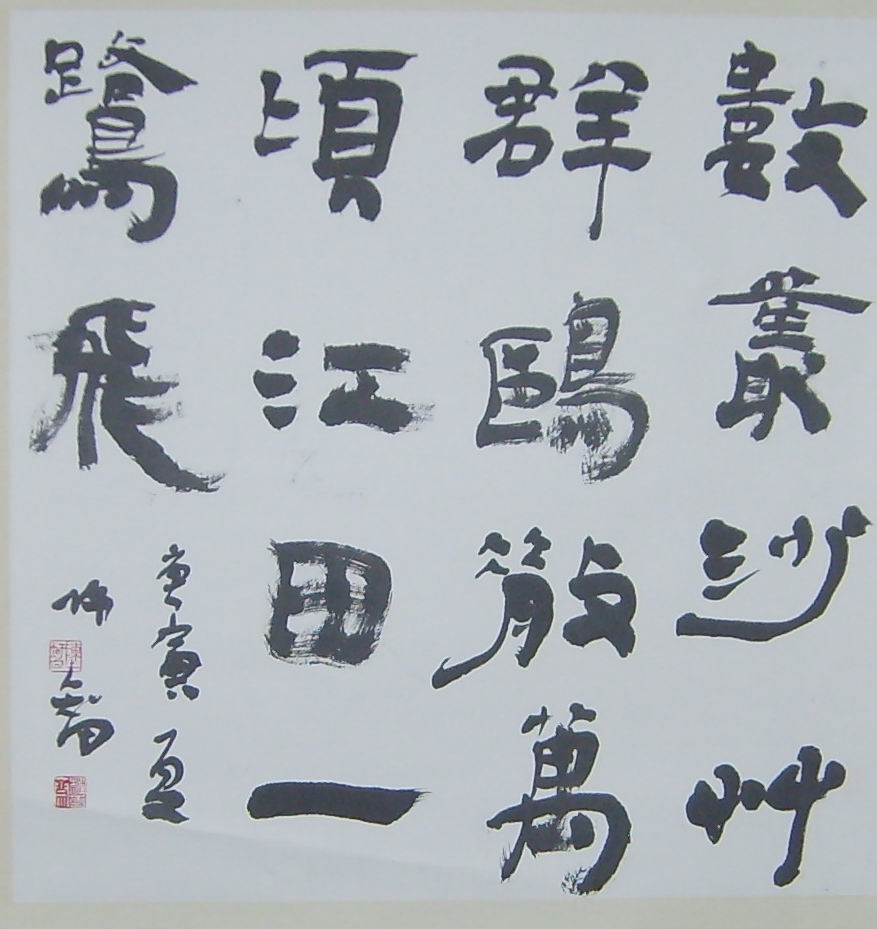 數叢沙艸
群鷗散萬
頃江田一
鷺飛
庚寅夏